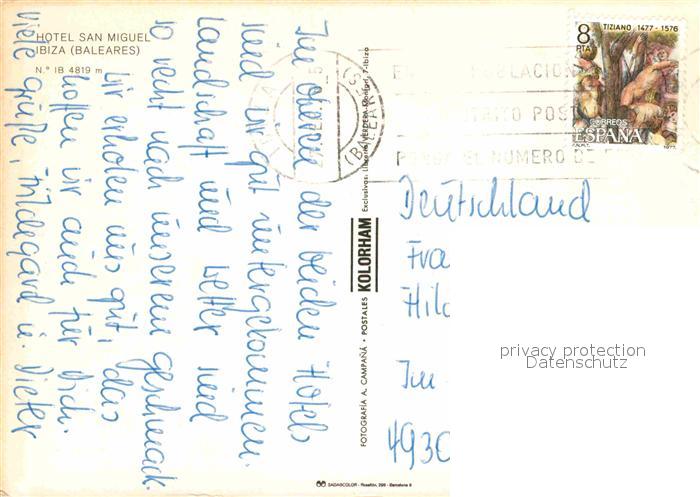 HOTEL SAN MIGUEL
IBIZA (BALEARES)
N.º IB 4819 m
Im oberen der beiden Hotels
sind wir gut untergekommen.
Landschaft und Wetter sind
so recht nach unserem Geschmack.
Wir erholen uns gut, das
hoffen wir auch für Dich.
Viele Grüße, Hildegard u. Dieter
FOTOGRAFIA A. CAMPAÑÁ • POSTALES KOLORHAM
Exclusivas: Librería VERDERA
7-Ibiza
SADAGCOLOR - Rosellón, 298 - Barcelona
8
PTA
TIZIANO 1477 - 1576
CORREOS
ESPAÑA
F.N.M.T.
1977
(BALEARES)
POBLACION
DISTRITO POST
PONGA EL NUMERO DE
Deutschland
Fra
Hild
Im
4930
privacy protection
Datenschutz